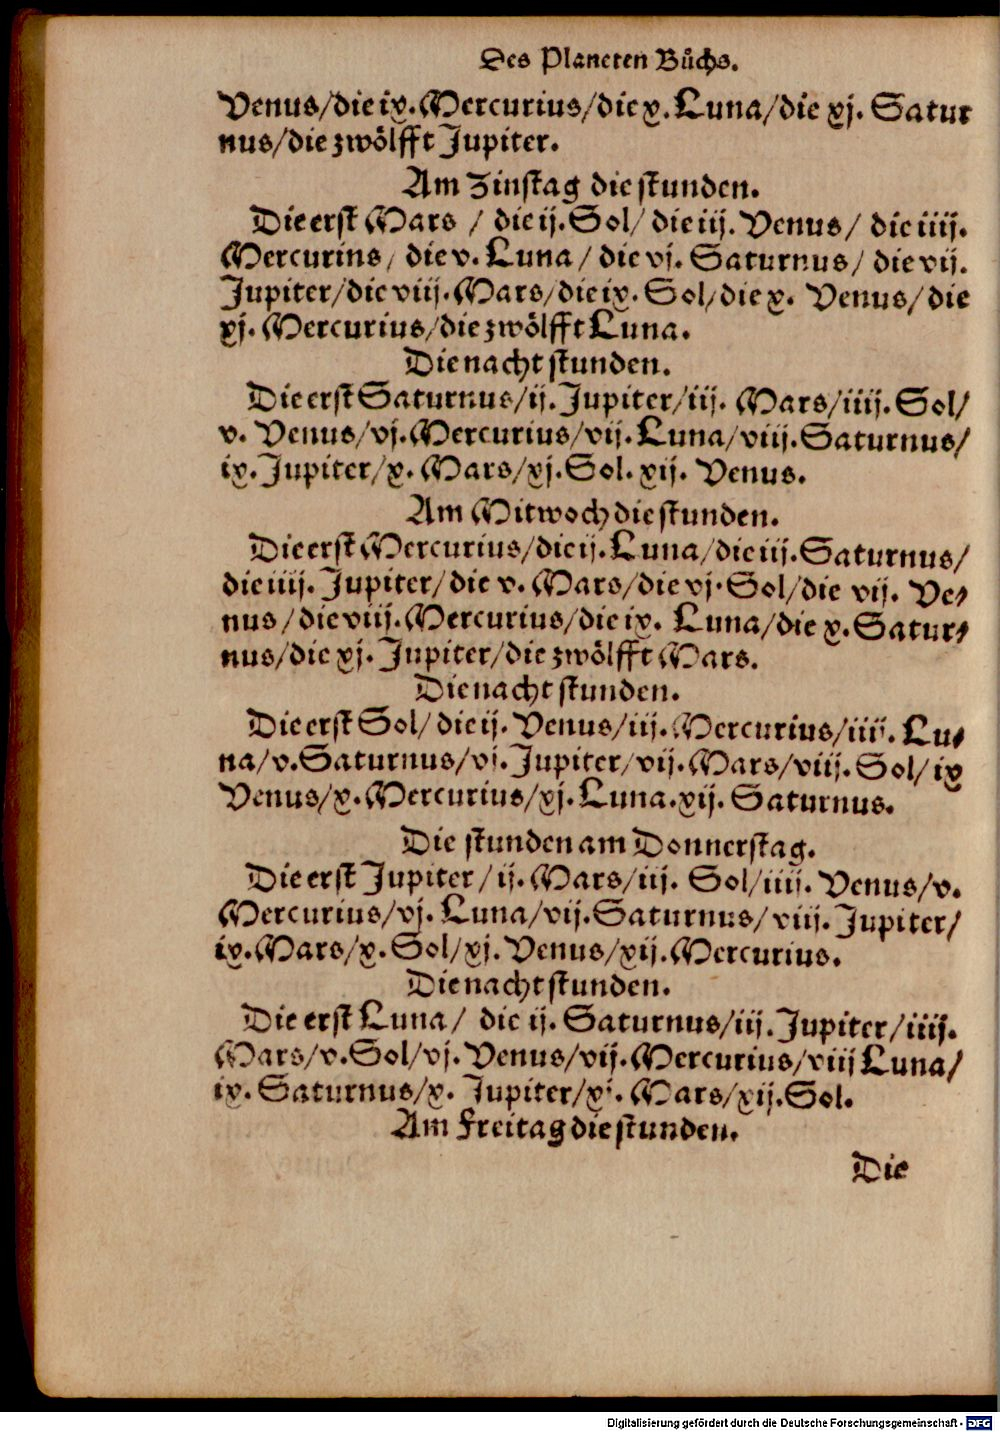 Des Planeten Bůchs.
Venus/die ix. Mercurius/die x. Luna/die xj. Satur
nus/die zwölfft Jupiter.
Am Zinstag die stunden.
Die erst Mars / die ij. Sol/ die iij. Venus/ die iiij.
Mercurins/ die v. Luna/ die vj. Saturnus/ die vij.
Jupiter/die viij. Mars/die ix. Sol/die x. Venus/die
xj. Mercurius/die zwölfft Luna.
Die nacht stunden.
Die erst Saturnus/ij. Jupiter/iij. Mars/iiij. Sol/
v. Venus/vj. Mercurius/vij. Luna/viij. Saturnus/
ix. Jupiter/x. Mars/xj. Sol. xij. Venus.
Am Mitwoch die stunden.
Die erst Mercurius/die ij. Luna/die iij. Saturnus/
die iiij. Jupiter/die v. Mars/die vj. Sol/die vij. Ve-
nus/die viij. Mercurius/die ix. Luna/die x. Satur-
nus/die xj. Jupiter/die zwölfft Mars.
Die nacht stunden.
Die erst Sol/ die ij. Venus/iij. Mercurius/iiij. Lu-
na/v. Saturnus/vj. Jupiter/vij. Mars/viij. Sol/ix
Venus/x. Mercurius/xj. Luna. xij. Saturnus.
Die stunden am Donnerstag.
Die erst Jupiter/ij. Mars/iij. Sol/iiij. Venus/v.
Mercurius/vj. Luna/vij. Saturnus/viij. Jupiter/
ix. Mars/x. Sol/xj. Venus/xij. Mercurius.
Die nacht stunden.
Die erst Luna/ die ij. Saturnus/iij. Jupiter/iiij.
Mars/v. Sol/vj. Venus/vij. Mercurius/viij Luna/
ix. Saturnus/x. Jupiter/xj. Mars/xij. Sol.
Am Freitag die stunden.
Die
Digitalisierung gefördert durch die Deutsche Forschungsgemeinschaft - DFG